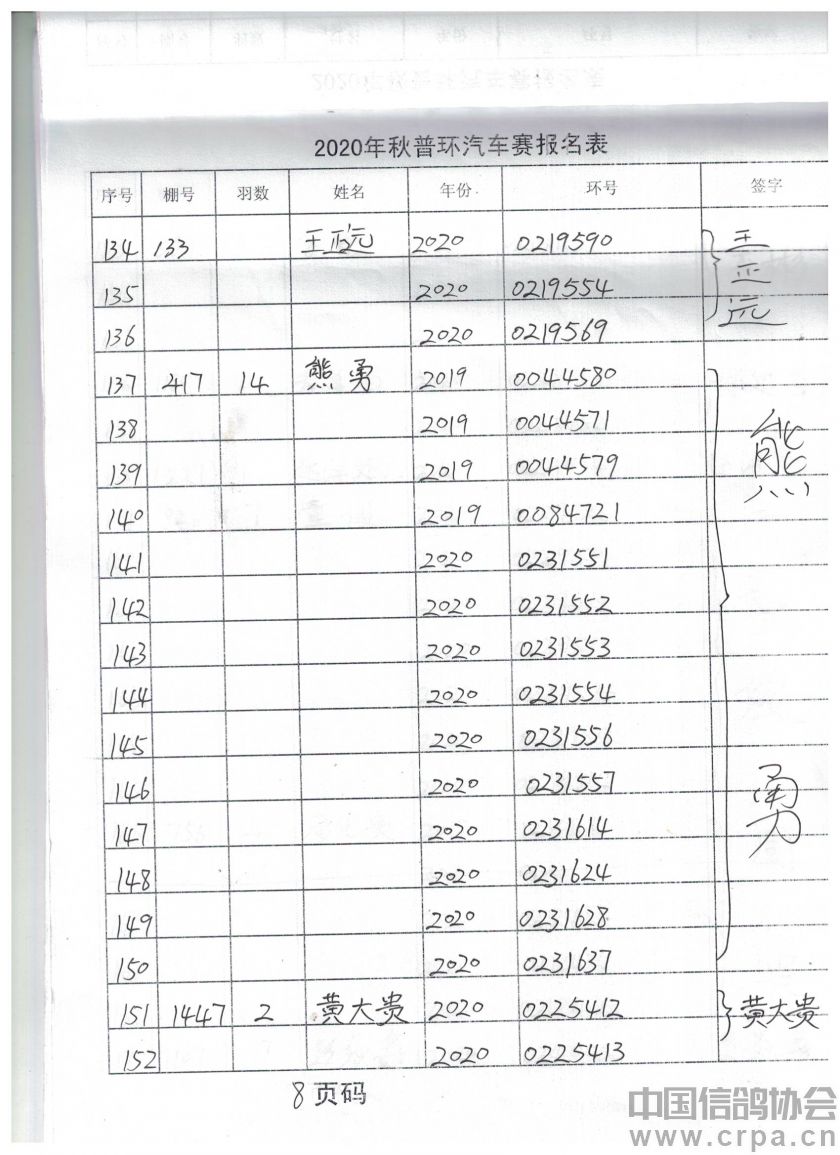 2020年秋普环汽车赛报名表
序号 棚号 羽数 姓名 年份 环号 签字
134 133 王正远 2020 0219590 王正远
135 2020 0219554
136 2020 0219569
137 417 14 熊勇 2019 0044580 熊勇
138 2019 0044571
139 2019 0044579
140 2019 0084721
141 2020 0231551
142 2020 0231552
143 2020 0231553
144 2020 0231554
145 2020 0231556
146 2020 0231557
147 2020 0231614
148 2020 0231624
149 2020 0231628
150 2020 0231637
151 1447 2 黄大贵 2020 0225412 黄大贵
152 2020 0225413
8页码
中国信鸽协会
www.crpa.cn